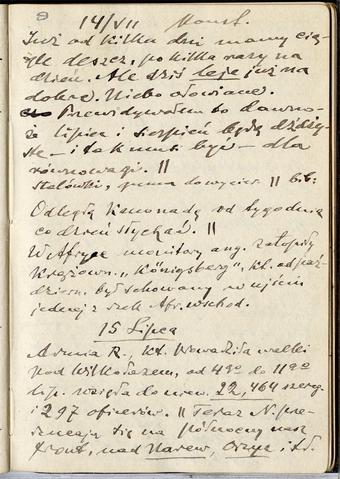 14/VII Konst.
Już od kilka dni mamy cią-
gle deszcz, po kilka razy na
dzień. Ale dziś leje już na
dobre. Niebo ołowiane.
Przewidywałem to dawno-
że lipiec i sierpień będą dżdży-
ste – i tak musi być – dla
równowagi. ||
Stalówki, guma do wycier. ||
Odległą kanonadę od tygodnia
co dzień słychać. ||
W Afryce monitory ang. zatopiły
krążown. „Königsberg", kt. od paź-
dziern. był schowany w ujściu
jednej z rzek Afr. wschod.
15 Lipca
Armia R., kt. prowadziła walki
pod Wilkołazem, od 4go do 11go
lip. wzięła do niew. 22,464 szereg.
i 297 oficerów. || Teraz N. prze-
rzucają się na północny nasz
front, nad Narew, Orzyc i t.d.